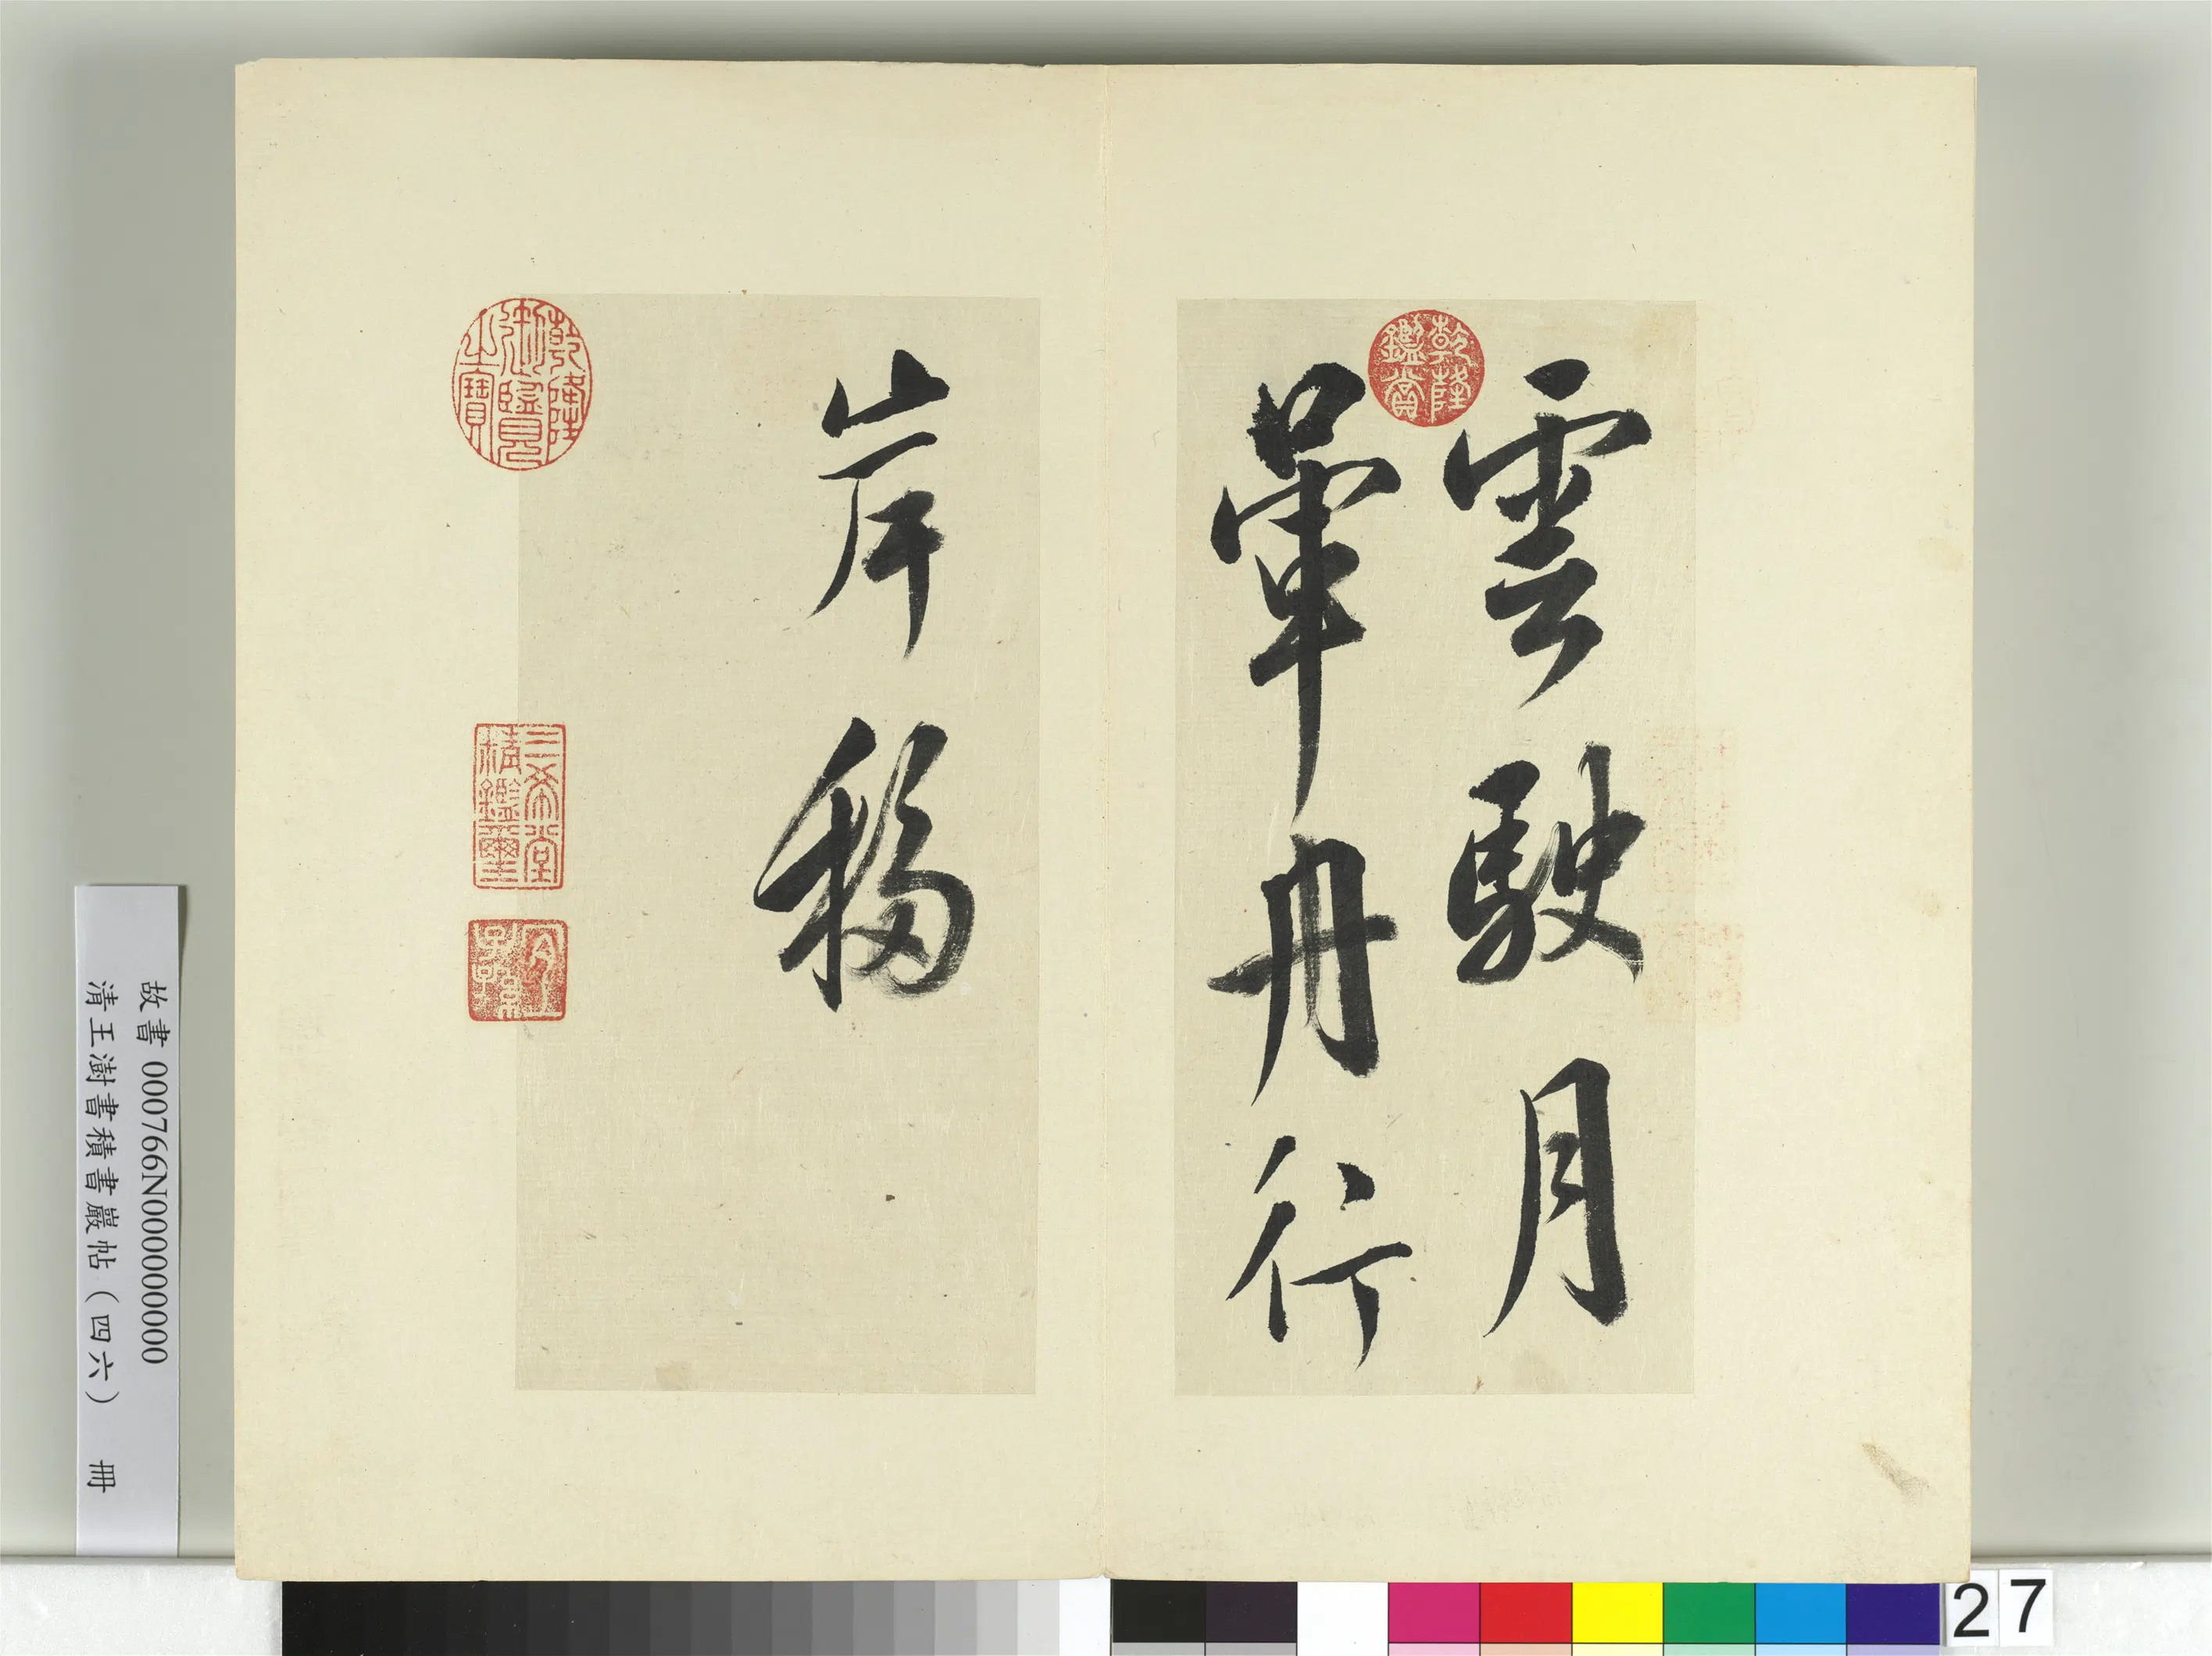 雲駛月
暈舟行
岸移
乾隆鑑賞
乾隆御覽之寶
三希堂精鑑璽
宜子孫
故書 000766N000000000
清王澍書積書巖帖（四六） 冊
27